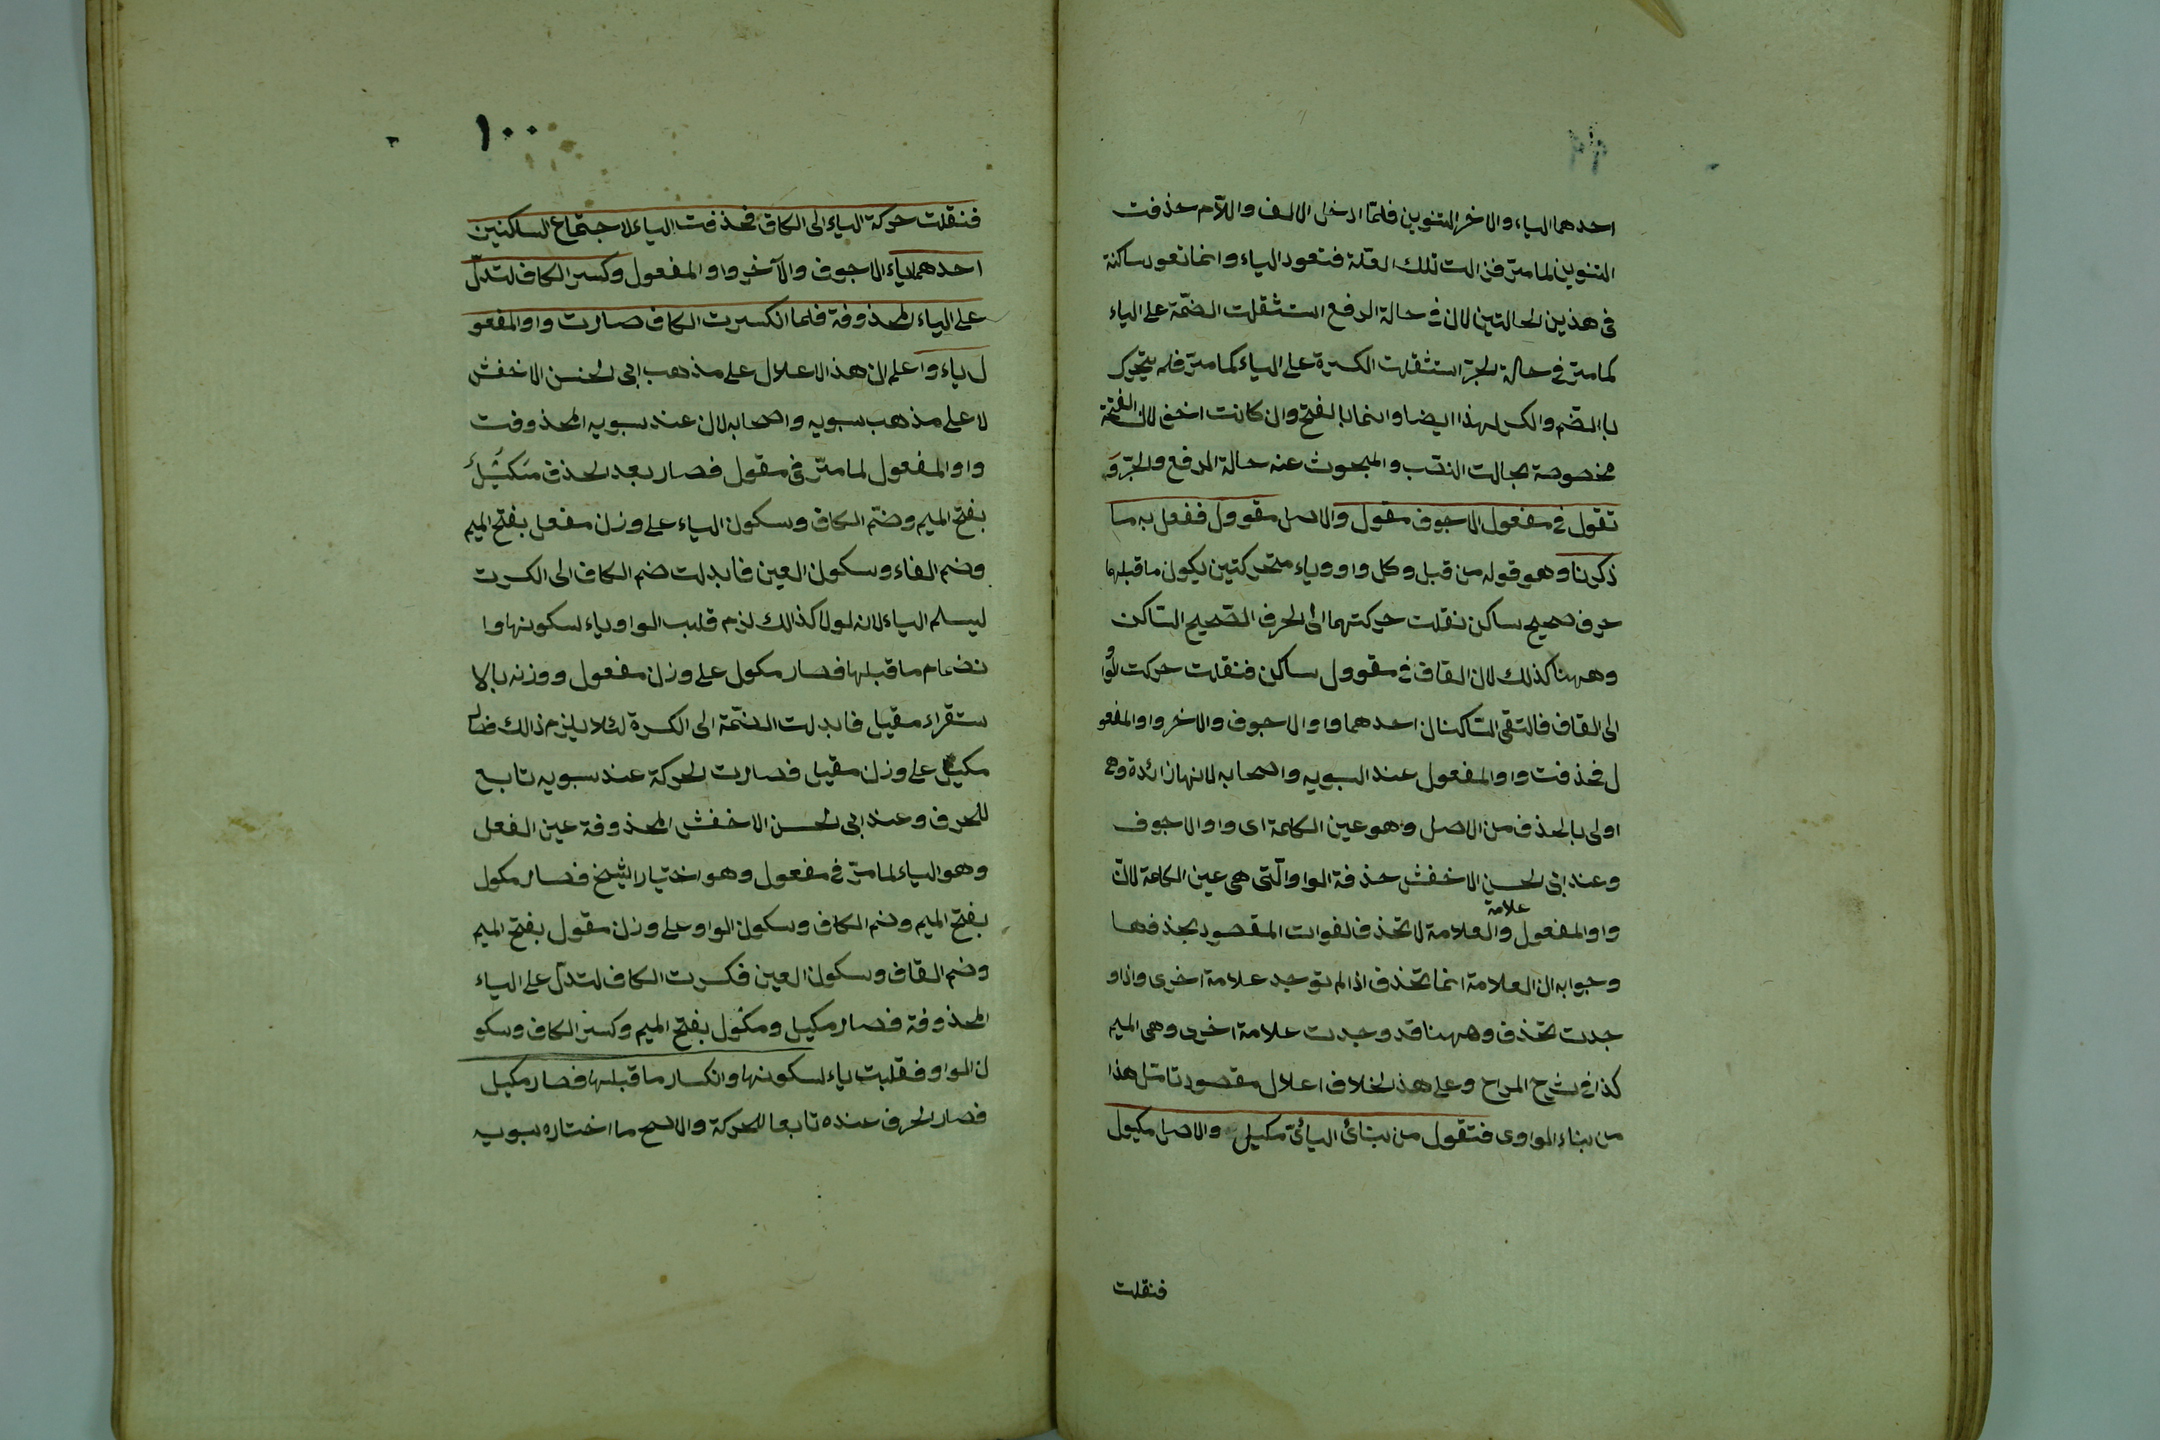 ٩٩
احدهما الياء والاخر التنوين فلما ادخل الالف واللام حذفت
التنوين لما مر فزالت تلك العلة فتعود الياء وانما تعود ساكنة
فى هذين الحالتين لان فى حالة الرفع استثقلت الضمّة على الياء
كما مر فى حالة الجر استثقلت الكسرة على الياء كما مر فلم يتحرك
بالضم والكسر لهذا ايضا وانما بالفتح وان كانت اخف لان الفتحة
مخصوصة بحالت النصب والمبحوث عنه حالة الرفع والجرّ وَ
تقول فى مفعول الاجوف مقول والاصل مقوول ففعل به ما
ذكرنا وهو قوله من قبل وكل واو وياء متحركتين يكون ما قبلهما
حرف صحيح ساكن نقلت حركتهما الى الحرف الصحيح الساكن
وههنا كذلك لان القاف فى مقوول ساكن فنقلت حركت الواو
الى القاف فالتقى الساكنان احدهما واو الاجوف والاخر واو المفعو
ل فحذفت واو المفعول عند السبويه واصحابه لانها زائدة وهى
اولى بالحذف من الاصل وهو عين الكلمة اى واو الاجوف
وعند ابى الحسن الاخفش حذفة الواو الّتى هى عين الكلمة لانّ
واو المفعول علامة والعلامة لا تحذف لفوات المقصود بحذفها
وجوابه ان العلامة انما تحذف اذا لم توجد علامة اخرى واذا و
جدت تحذف وههنا قد وجدت علامة اخرى وهى الميم
كذا فى شرح المراح وعلى هذ الخلاف اعلال مقصود تامّل هذا
من بناء الواوى فتقول من بنائ اليائىّ مكيل والاصل مكيول
فنقلت
١٠٠
فنقلت حركة الياء الى الكاف فحذفت الياء لاجتماع الساكنين
احدهما ياء الاجوف والآخر واو المفعول وكسر الكاف لتدلّ
على الياء المحذوفة فلما انكسرت الكاف صارت واو المفعو
ل ياء واعلم ان هذ الاعلال على مذهب ابى الحسن الاخفش
لا على مذهب سبويه واصحابه لان عند سبويه المحذوفت
واو المفعول لما مرّ فى مقول فصار بعد الحذف مَكُيْلٌ
بفتح الميم وضم الكاف وسكون الياء على وزن مفعل بفتح الميم
وضم الفاء وسكون العين فابدلت ضم الكاف الى الكسرت
ليسلم الياء لانه لولا كذالك لزم قلب الواو ياء لسكونها وا
نضمام ما قبلها فصار مكول على وزن مفعول ووزنه بالا
ستقراء مقيل فابدلت الضمّة الى الكسرة لئلا يلزم ذالك فصار
مكيل على وزن مقيل فصارت الحركة عند سبويه تابع
للحرف وعند ابى الحسن الاخفش المحذوفة عين الفعل
وهو الياء لما مرّ فى مفعول وهو اختيار الشيخ فصار مكول
بفتح الميم وضم الكاف وسكون الواو على وزن مقول بفتح الميم
وضم القاف وسكون العين فكسرت الكاف لتدلّ على الياء
المحذوفة فصار مكيل ومكول بفتح الميم وكسر الكاف وسكو
ن الواو فقلبت ياء لسكونها وانكسار ما قبلها فصار مكيل
فصار الحرف عنده تابعا للحركة والاصح ما اختاره سبويه